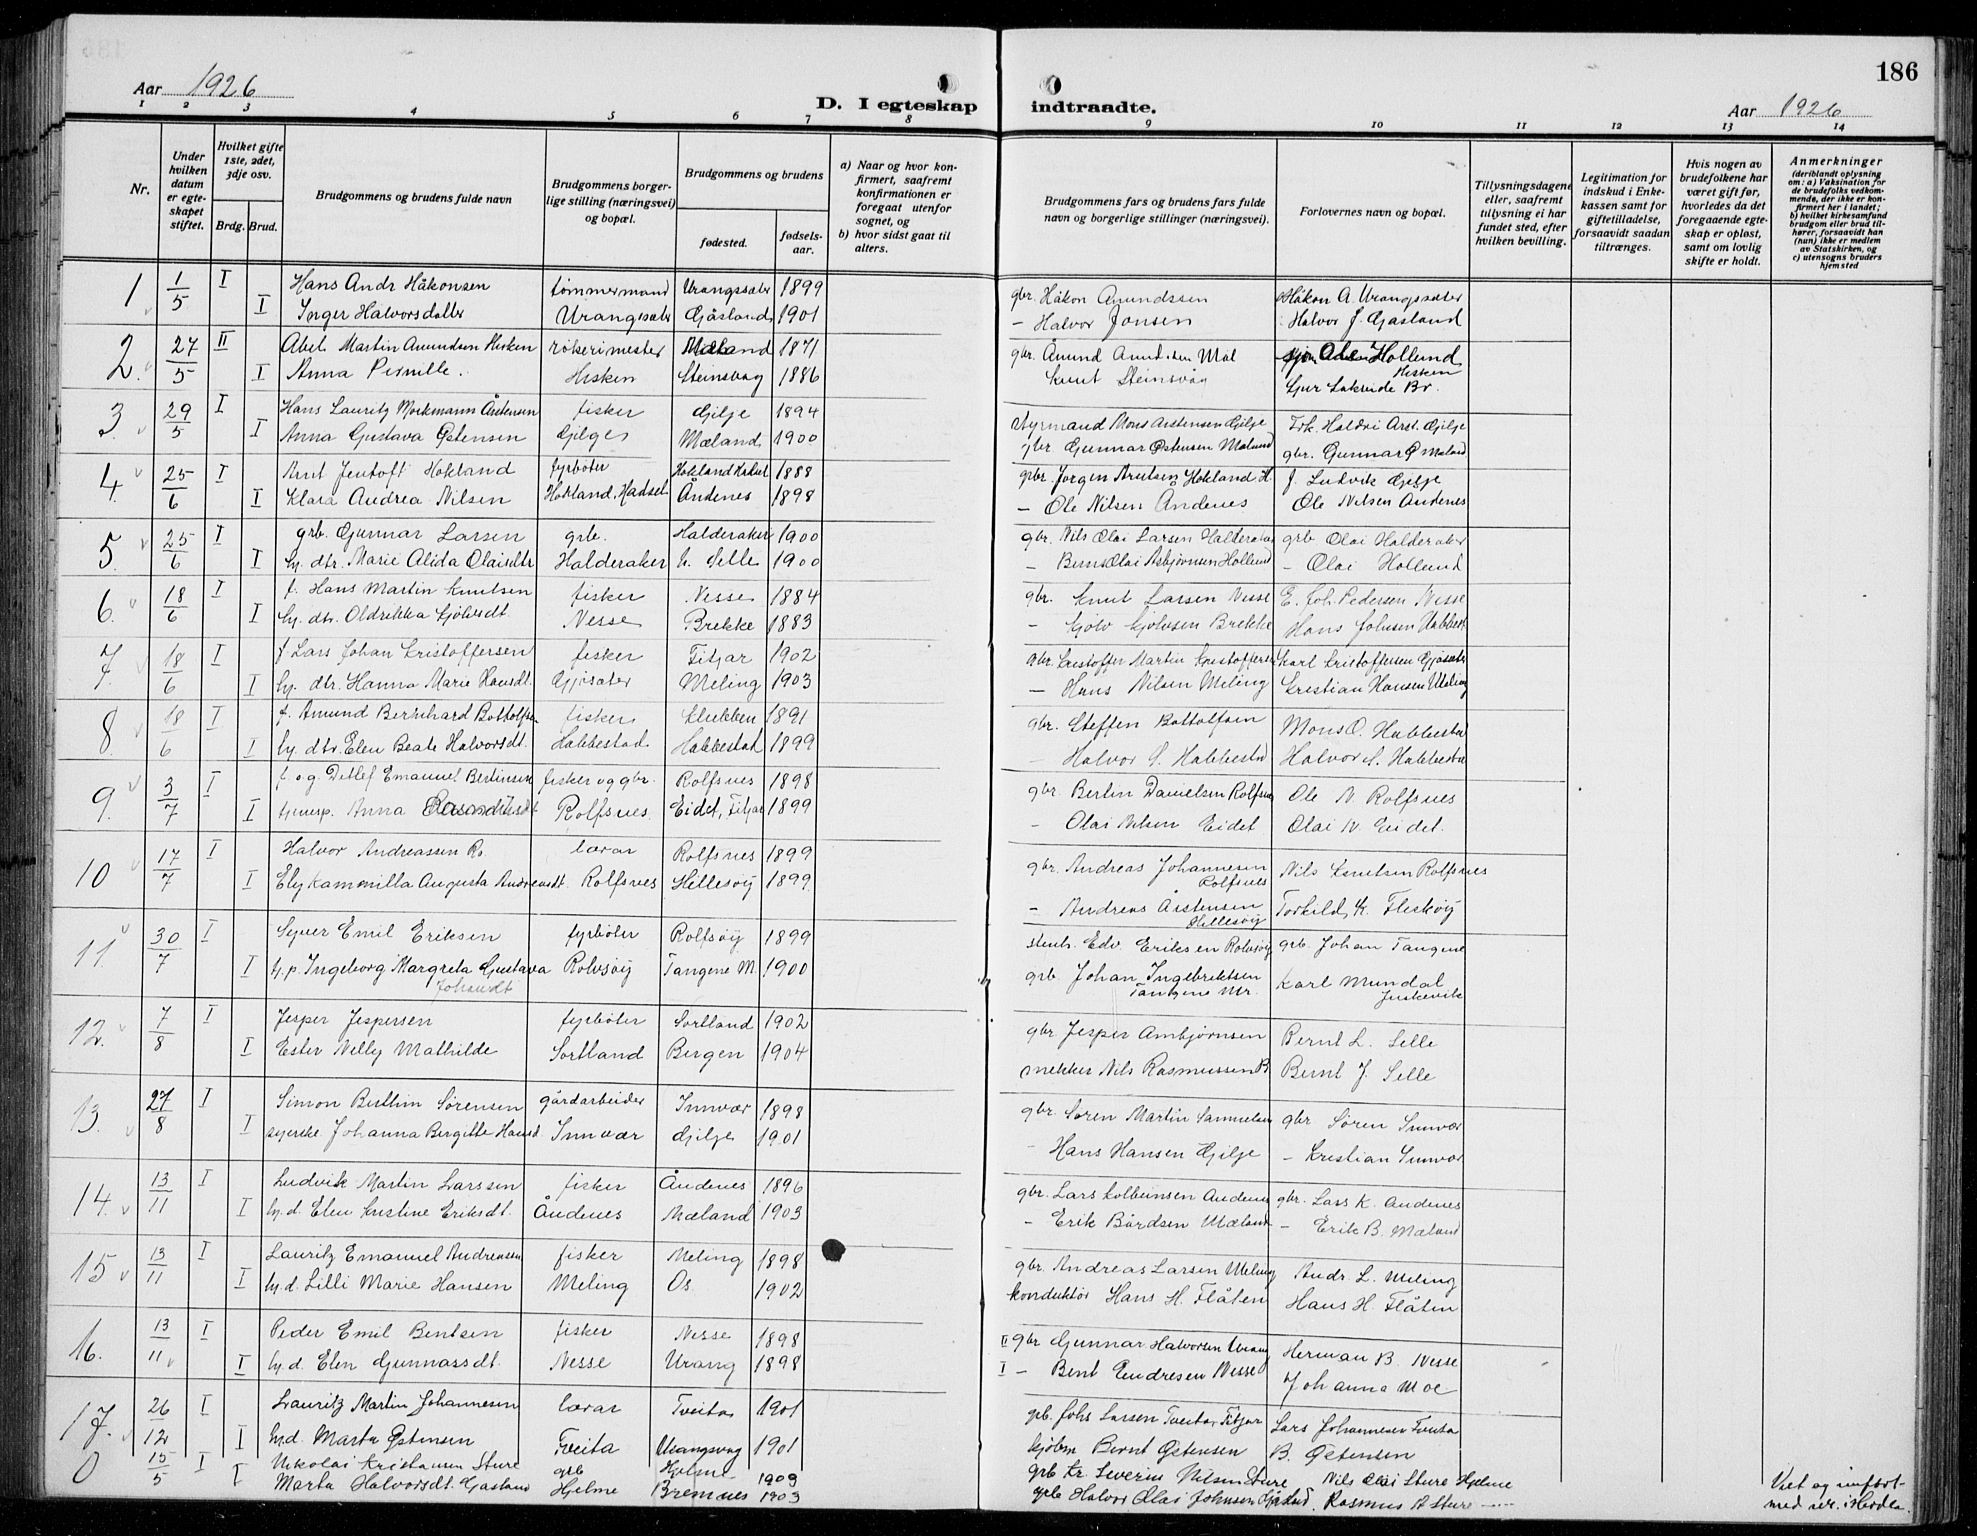 186
Aar 1926
D. I egteskap indtraadte.
Aar 1926
1 2 3 4 5 6 7 8 9 10 11 12 13 14
Nr.
Under hvilken datum er egteskapet stiftet.
Hvilket gifte 1ste, 2det, 3dje osv.
Brdg. Brud.
Brudgommens og brudens fulde navn
Brudgommens borgerlige stilling (næringsvei) og bopæl.
Brudgommens og brudens
fødested.
fødselsaar.
a) Naar og hvor konfirmert, saafremt konfirmationen er foregaat utenfor sognet, og
b) hvor sidst gaat til alters.
Brudgommens fars og brudens fars fulde navn og borgerlige stillinger (næringsvei).
Forlovernes navn og bopæl.
Tillysningsdagene eller, saafremt tillysning ei har fundet sted, efter hvilken bevilling.
Legitimation for indskud i Enkekassen samt for giftetilladelse, forsaavidt saadan tiltrænges.
Hvis nogen av brudefolkene har været gift før, hvorledes da det foregaaende egteskap er opløst, samt om lovlig skifte er holdt.
Anmerkninger (deriblandt oplysning om: a) Vaksination for de brudefolks vedkommende, der ikke er konfirmert her i landet; b) hvilket kirkesamfund brudgom eller brud tilhører, forsaavidt han (hun) ikke er medlem av Statskirken, og c) utensogns bruders hjemsted
1 1/5 I Hans Andr Håkonsen tømmermand Urangsæter 1899 gbr. Håkon Amundssen Håkon A. Urangsæter
I Inger Halvorsdatter Urangsæter Gåsland 1901 – Halvor Jonsen Halvor J. Gåsland
2 27/5 II Abel Martin Amundsen Hisken røkerimester Mæland 1871 gbr. Åmund Amundsen Mæl Ole Hollund
I Anna Pernille. Hisken Steinsvåg 1886 Knut Steinsvåg Sjur Lakseide Br.
3 29/5 I Hans Lauritz Morkmann Årstensen fisker Gilje 1894 styrmand Mons Arstensen Gilje Frk. Haldri Arst. Gilje
I Anna Gustava Østensen Gilje Mæland 1900 gbr. Gunnar Østensen Mæland gbr. Gunnar Ø Mæland
4 25/6 I Arnt Jentoft Hokland fyrbøter Hokland Hadsel 1888 gbr. Jørgen Arntsen Hokland H. f. Ludvik Gilje
I Klara Andrea Nilsen Hokland, Hadsel Åndenes 1898 – Ole Nilsen Åndenes Ole Nilsen Åndenes
5 25/6 I grb. Gunnar Larsen grb. Halderaker 1900 gbr. Nils Olai Larsen Halderaker grb Olai Halderaker
I hj. dtr. Marie Alida Olaisdtr Halderaker h. Selle 1900 – Bernt Olai Asbjørnsen Hollund – Olai Hollund
6 18/6 I f. Hans Martin Knutsen fisker Nesse 1884 gbr. Knut Larsen Nesse E. Joh. Pedersen Nesse
I hj. dtr. Oldrikka Gjølvsdt. Nesse Brekke 1883 – Gjølv Gjølvsen Brekke Hans Johnsen Habbest.
7 18/6 I f Lars Johan Kristoffersen fisker Fitjar 1902 gbr. Kristoffer Martin Kristoffersen Karl Kristoffersen Gjøsæter
I hj. dtr. Hanna Marie Hansdt. Gjøsæter Meling 1903 – Hans Nilsen Meling Kristian Hansen Meling
8 18/6 I f. Amund Bernhard Bottolfsen fisker Klukken 1891 gbr. Steffen Bottolfsen Mons O. Habbestad
I hj. dtr. Elen Beate Halvorsdt. Habbestad Habbestad 1899 – Halvor S. Habbestad Halvor S. Habbestad
9 3/7 I f. og g. Detlef Emanuel Bertinsen fisker og gbr. Rolfsnes 1898 gbr. Bertin Danielsen Rolfsnes Ole N. Rolfsnes
I tjenesp. Anna Rolfsnes Eidet, Fitjar 1899 – Olai Nilsen Eidet Olai N. Eidet.
10 17/7 I Halvor Andreassen Ro. lærar Rolfsnes 1899 gbr. Andreas Johannesen Rolfsnes Nils Knutsen Rolfsnes
I Ely Kamenilla Augusta Andreasdt. Rolfsnes Hillesøy 1899 – Andreas Årstensen Hillesøy Torkild K. Fleskøy
11 30/7 I Syver Emil Eriksen fyrbøter Rolfsøy 1899 stenh. Edv. Eriksen Rolvsøy grb. Johan Tangene
I hj.p. Ingeborg Margreta Gustava Johansdt Rolvsøy Tangene M. 1900 grb. Johan Ingebriktsen Tangene Mr. Karl Mundal
12. 7/8 I Jesper Jespersen fyrbøter Sortland 1902 gbr. Jesper Arnbjørnsen Bernt L. Selle
I Ester Nelly Mathilde Sortland Bergen 1904 snekker Nils Rasmussen B. Bernt J. Selle
13. 27/8 I Simon Berthin Sørensen gårdarbeider Innvær 1898 gbr Søren Martin Samuelsen gbr. Søren Innvær
I syerske Johanna Birgitte Hansd Innvær Gilje 1901 – Hans Hansen Gilje – Kristian Innvær
14. 13/11 I Ludvik Martin Larssen fisker Åndenes 1896 gbr. Lars Kolbeinsen Åndenes gbr. Lars K. Åndenes
I hj.d. Elen Kristine Eriksdt. Åndenes Mæland 1903 – Erik Bårdsen Mæland – Erik B. Mæland
15 13/11 I Lauritz Emanuel Andreasen fisker Meling 1898 gbr. Andreas Larsen Meling Andr. L. Meling
I hj.d. Lilli Marie Hansen Meling Os. 1902 konduktør Hans H. Flåten Hans H. Flåten
16. 13/11 I Peder Emil Bentsen fisker Nesse 1898 II gbr Gunnar Halvorsen Urang Herman B. Nesse
I hj.d. Elen Gunnarsdt. Nesse Urang 1898 I – Bent Endresen Nesse Johanna Moe
17. 26/12 I Lauritz Martin Johannesen lærar Tveita 1901 grb. Johs Larsen Tveita, Fitjar Lars Johannesen Tveita
I hj.d. Marta Østensen Tveita Urangsvåg 1901 kjøbm Bernt Østensen B. Østensen
0 15/5 I Nikolai Kristiansen Sture grb Hjelme 1909 grb Kr. Severin Nilsen Sture Nils Olai Sture Hjelme
I Marta Halvorsdt. Gåsland Hjelme Bremnes 1903 grb Halvor Olai Johnsen Gåsland. Rasmus A Sture
Viet og innført med nr. i Herdla